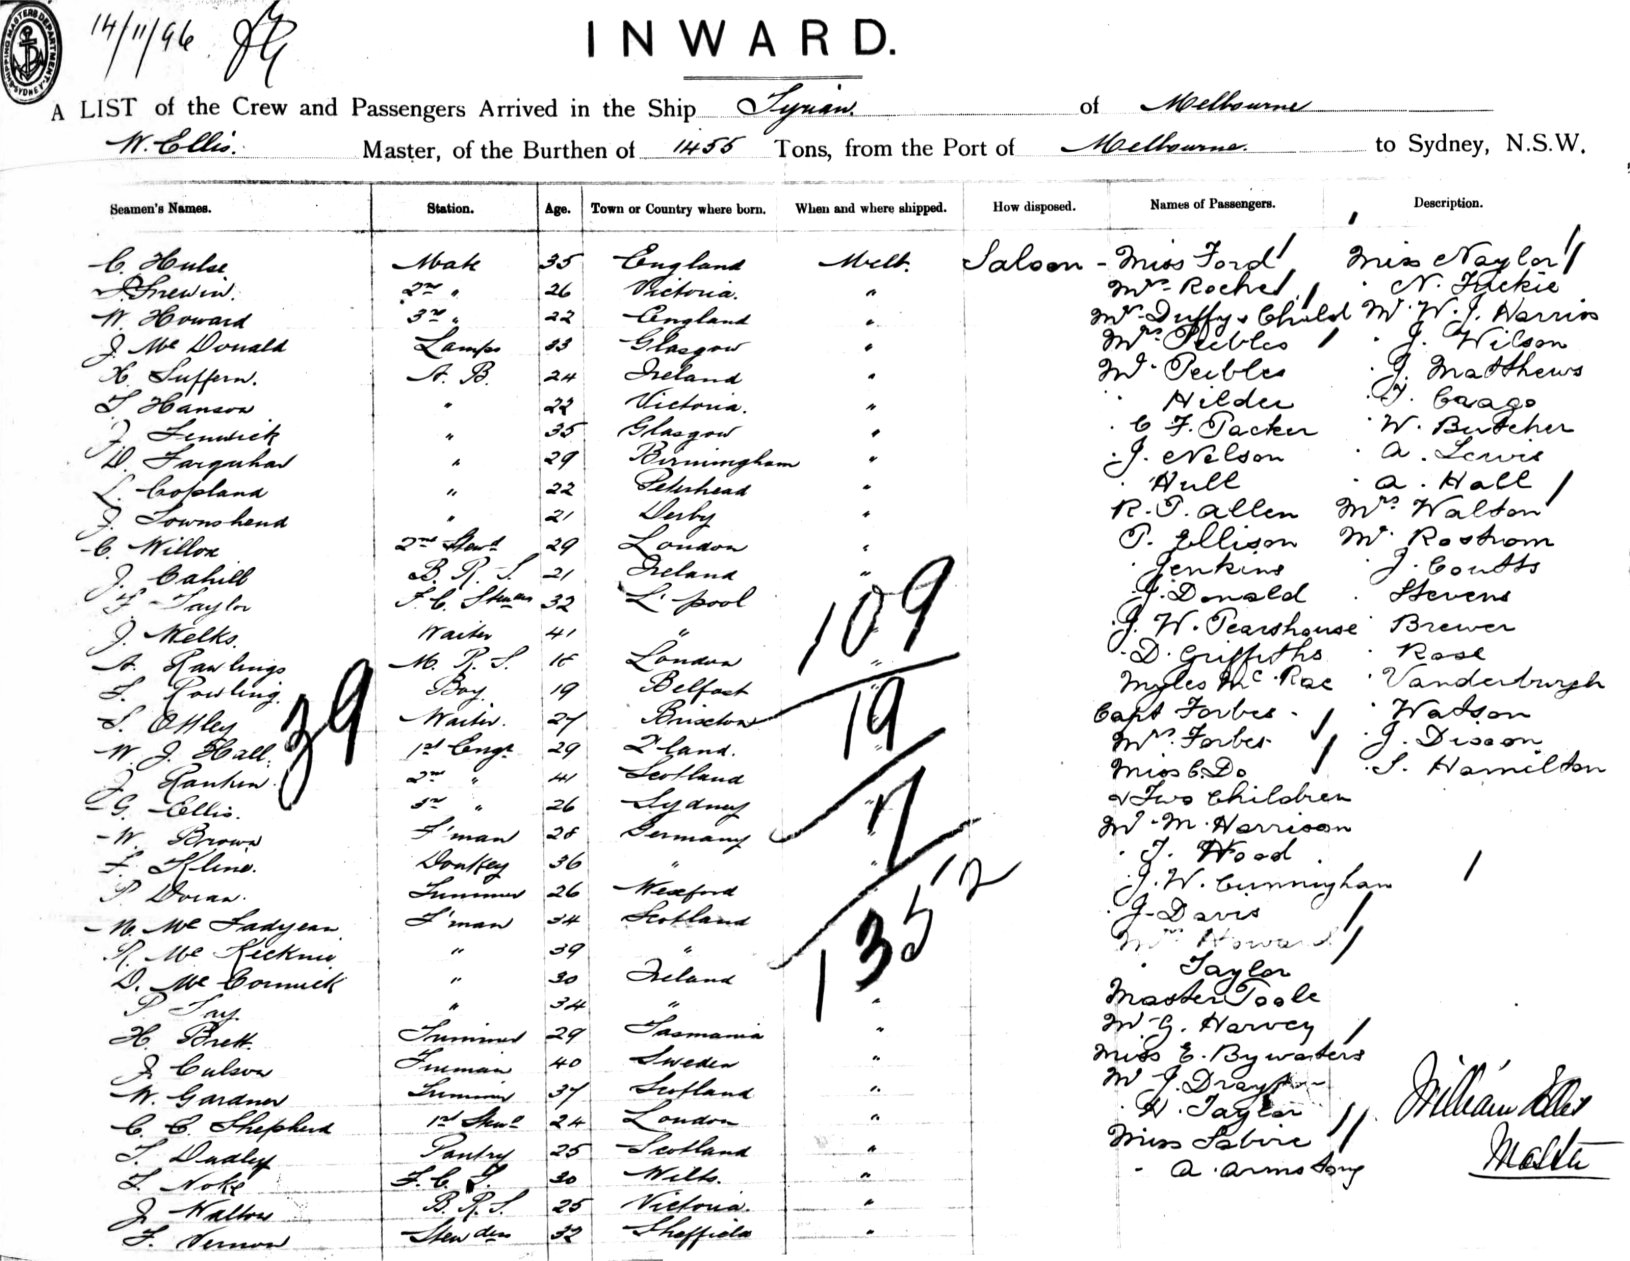 14/11/96
SHIPPING MASTERS DEPARTMENT SYDNEY
INWARD.
A LIST of the Crew and Passengers Arrived in the Ship Syrian. of Melbourne
W. Ellis. Master, of the Burthen of 1455 Tons, from the Port of Melbourne. to Sydney, N.S.W.
Seamen's Names. Station. Age. Town or Country where born. When and where shipped. How disposed. Names of Passengers. Description.
C. Hulse Mate 35 England Melb. Saloon - Miss Ford Miss Naylor
2nd " 26 Victoria. " Mrs Roche N. Fackie
W. Howard 3rd " 22 England " Mrs Duffy & Child Mr W. J. Harris
J. McDonald Lamps 33 Glasgow " Mrs Peebles J. Wilson
H. Suffern. A. B. 24 Ireland " Mr Peebles J. Matthews
T. Hanson " 22 Victoria. " Hilder
J. Fenwick " 35 Glasgow " C F. Packer W. Butcher
D. Farquhar " 29 Birmingham " J. Nelson A. Lewis
L. Copland " 22 Peterhead " Hull A. Hall
J. Townshend " 21 Derby " R. T. Allen Mrs Walton
C. Willox 2nd Stewd 29 London " P. Ellison Mr. Rostrom
J. Cahill B. R. S. 21 Ireland " Jenkins J. Coutts
F. Taylor F. C. Stewess 32 L'pool J. Donald Stevens
J. Melks. Waiter 41 " J. W. Pearshouse Brewer
109
A. Rawlings M. R. S. 18 London " D. Griffiths Rose
F. Rowling. Boy. 19 Belfast Myles McRae Vanderburgh
39
S. Ottley Waiter. 27 Brixton Capt Forbes - Watson
19
W. J. Hall. 1st Engr 29 Q'land. Mrs. Forbes J. Dixon
J. Rankin. 2nd " 41 Scotland Miss C. Do S. Hamilton
G. Ellis. 3rd " 26 Sydney " & Two Children
7
W. Brown F'man 28 Germany " Mr M. Harrison
F. Kline. Donkey 36 " " J. Wood
P. Doran. Trimmer 26 Wexford J. W. Cunningham
135
N. McFadyean F'man 34 Scotland J. Davis
R. McKechnie " 39 " Mrs Howard
D. McCormick " 30 Ireland Taylor
P. Fay. " 34 " " Master Toole
H. Brett. Trimmer 29 Tasmania " Mr G. Harvey
J. Culson Fireman 40 Sweden " Miss E. Bywaters
W. Gardner Trimmer 37 Scotland " Mr J. Drayton
William Ellis
C. C. Shepherd 1st Stewd 24 London " H. Taylor
T. Dudley Pantry 25 Scotland " Miss Sabine
Master
F. Noke F. C. S. 30 Wilts. " A. Armstrong
J. Walton B. R. S. 25 Victoria. "
F. Vernon 32 Sheffield "